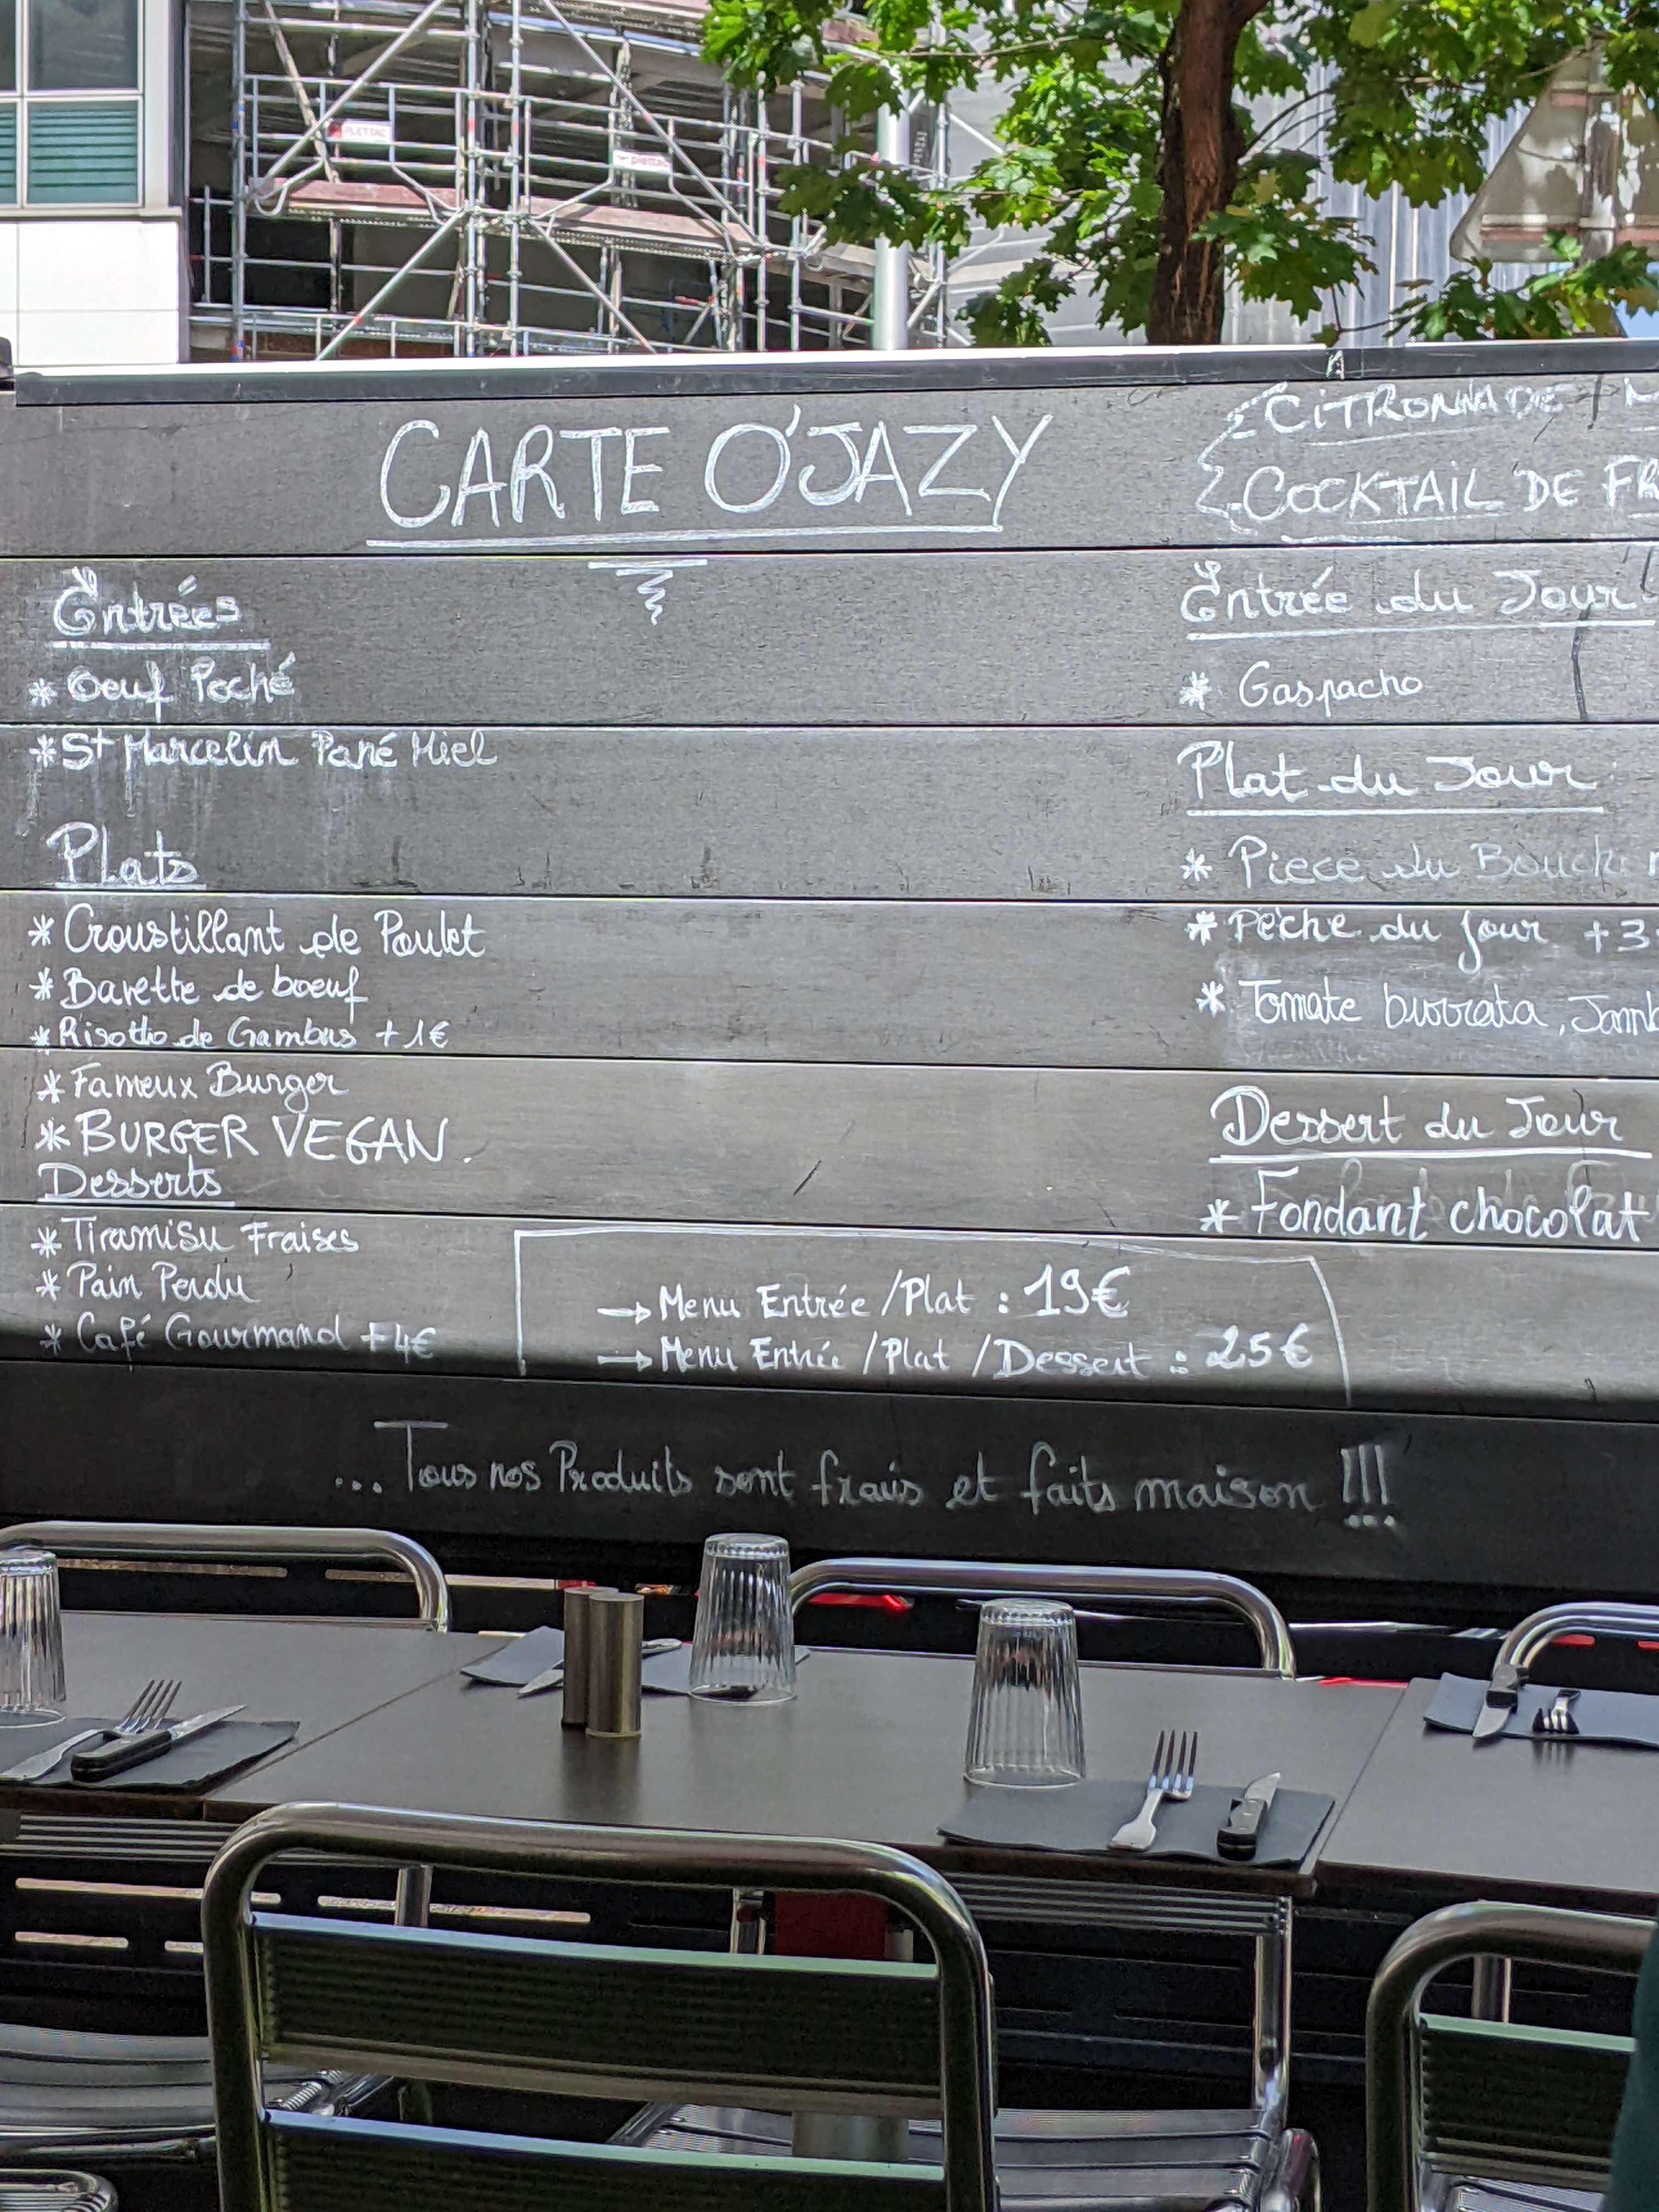 PLETTAC
plettac
CARTE O'JAZY
CITRONNADE
COCKTAIL DE FR
Entrées
* Oeuf Poché
* St Marcelin Pané Miel
Plats
* Croustillant de Poulet
* Bavette de boeuf
* Risotto de Gambas +1€
* Fameux Burger
* BURGER VEGAN.
Desserts
* Tiramisu Fraises
* Pain Perdu
* Café Gourmand +4€
Entrée du Jour
* Gaspacho
Plat du Jour
* Piece du Bouche
* Pêche du jour +3
* Tomate burrata, Jamb
Dessert du Jour
* Fondant chocolat
→ Menu Entrée /Plat : 19€
→ Menu Entrée /Plat /Dessert : 25€
... Tous nos Produits sont frais et faits maison !!!